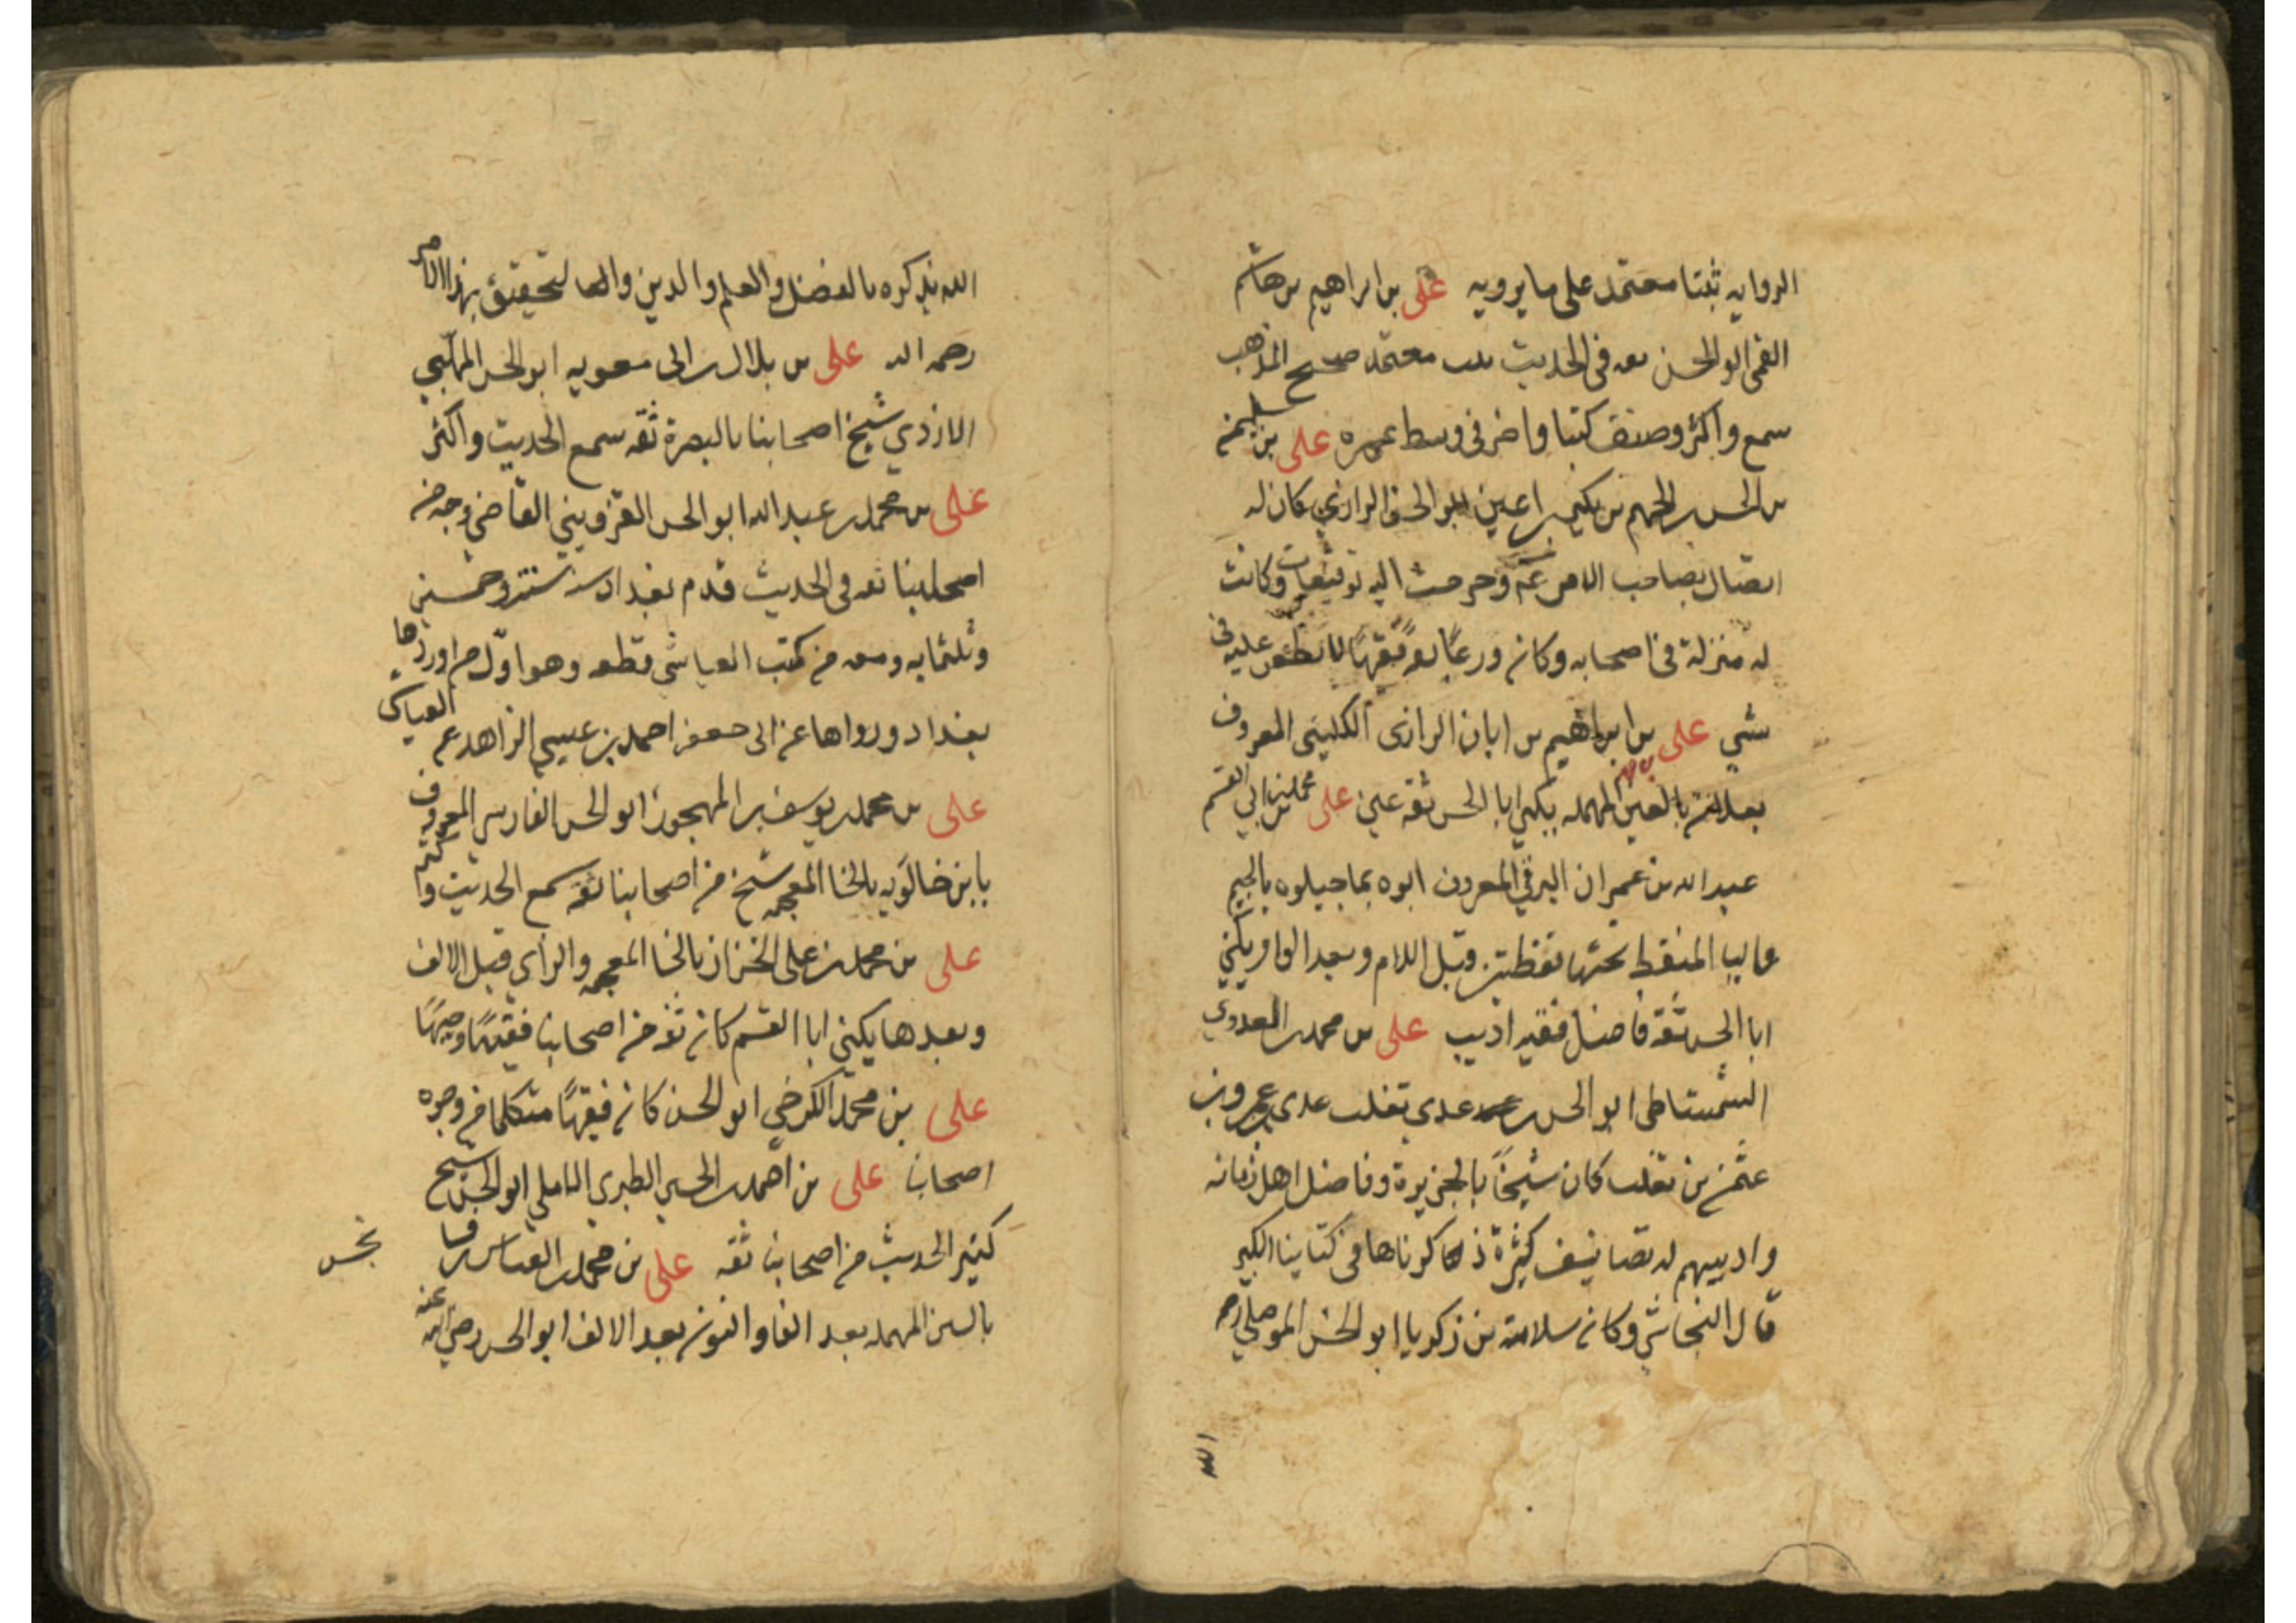 الروايه ثبتا معتمد على ما يرويه على بن ابراهيم بن هاشم
القمى ابو الحسن ثقه فى الحديث ثبت معتمد صحيح المذهب
سمع واكثر وصنف كتبا واضر فى وسط عمره على بن سليمن
بن الحسن بن الجهم بن بكير بن اعين ابو الحسن الرازي كان له
اتصال بصاحب الامر عم وخرجت اليه توقيعات وكانت
له منزلة فى اصحابه وكان ورعًا ثقه فقيهًا لا يطعن عليه فى
شي على بن ابراهيم بن ابان الرازى الكلينى المعروف
بعلان بالعين المهمله يكنى ابا الحسن ثقة عين على بن محمد بن ابي القسم
عبد الله بن عمران البرقي المعروف ابوه بماجيلوه بالجيم
واليا المنقط تحتها نقطتين قبل اللام وبعد الواو يكنى
ابا الحسن ثقة فاضل فقيه اديب على بن محمد العدوي
الشمشاطى ابو الحسن من عدى تغلب عدى عمرو بن
عثمن بن تغلب كان شيخًا بالجزيرة وفاضل اهل زمانه
واديبهم له تصانيف كثيرة ذكرناها فى كتابنا الكبير
قال النجاشي وكان سلامة بن زكريا ابو الحسن الموصلي رحمه
الله
الله يذكره بالفضل والعلم والدين والتحقيق بهذا الامر
رحمه الله على بن بلال بن ابى معويه ابو الحسن المهلبي
الازدي شيخ اصحابنا بالبصرة ثقه سمع الحديث واكثر
على بن محمد بن عبد الله ابو الحسن القزويني القاضى وجه من
اصحابنا ثقه فى الحديث قدم بغداد سنة ست وخمسين
وثلثمايه ومعه من كتب العياشي قطعه وهو اول من اوردها
بغداد ورواها عن ابى جعفر احمد بن عيسي الزاهد عن العياشى
على بن محمد بن يوسف بن المهجور ابو الحسن الفارسى المعروف
بابن خالويه بالخا المعجمه شيخ من اصحابنا ثقه سمع الحديث واكثر
على بن محمد بن على الخزاز بالخا المعجمه والزاي قبل الالف
وبعدها يكنى ابا القسم كان ثقه من اصحابنا فقيهًا وجيهًا
على بن محمد الكرخي ابو الحسن كان فقيهًا متكلما من وجوه
اصحابنا على بن احمد بن الحسين الطبري الاملي ابو الحسن شيخ
كثير الحديث من اصحابنا ثقه على بن محمد بن العباس بن فسا
بالسين المهمله بعد الفا والنون بعد الالف ابو الحسن رضي الله عنه